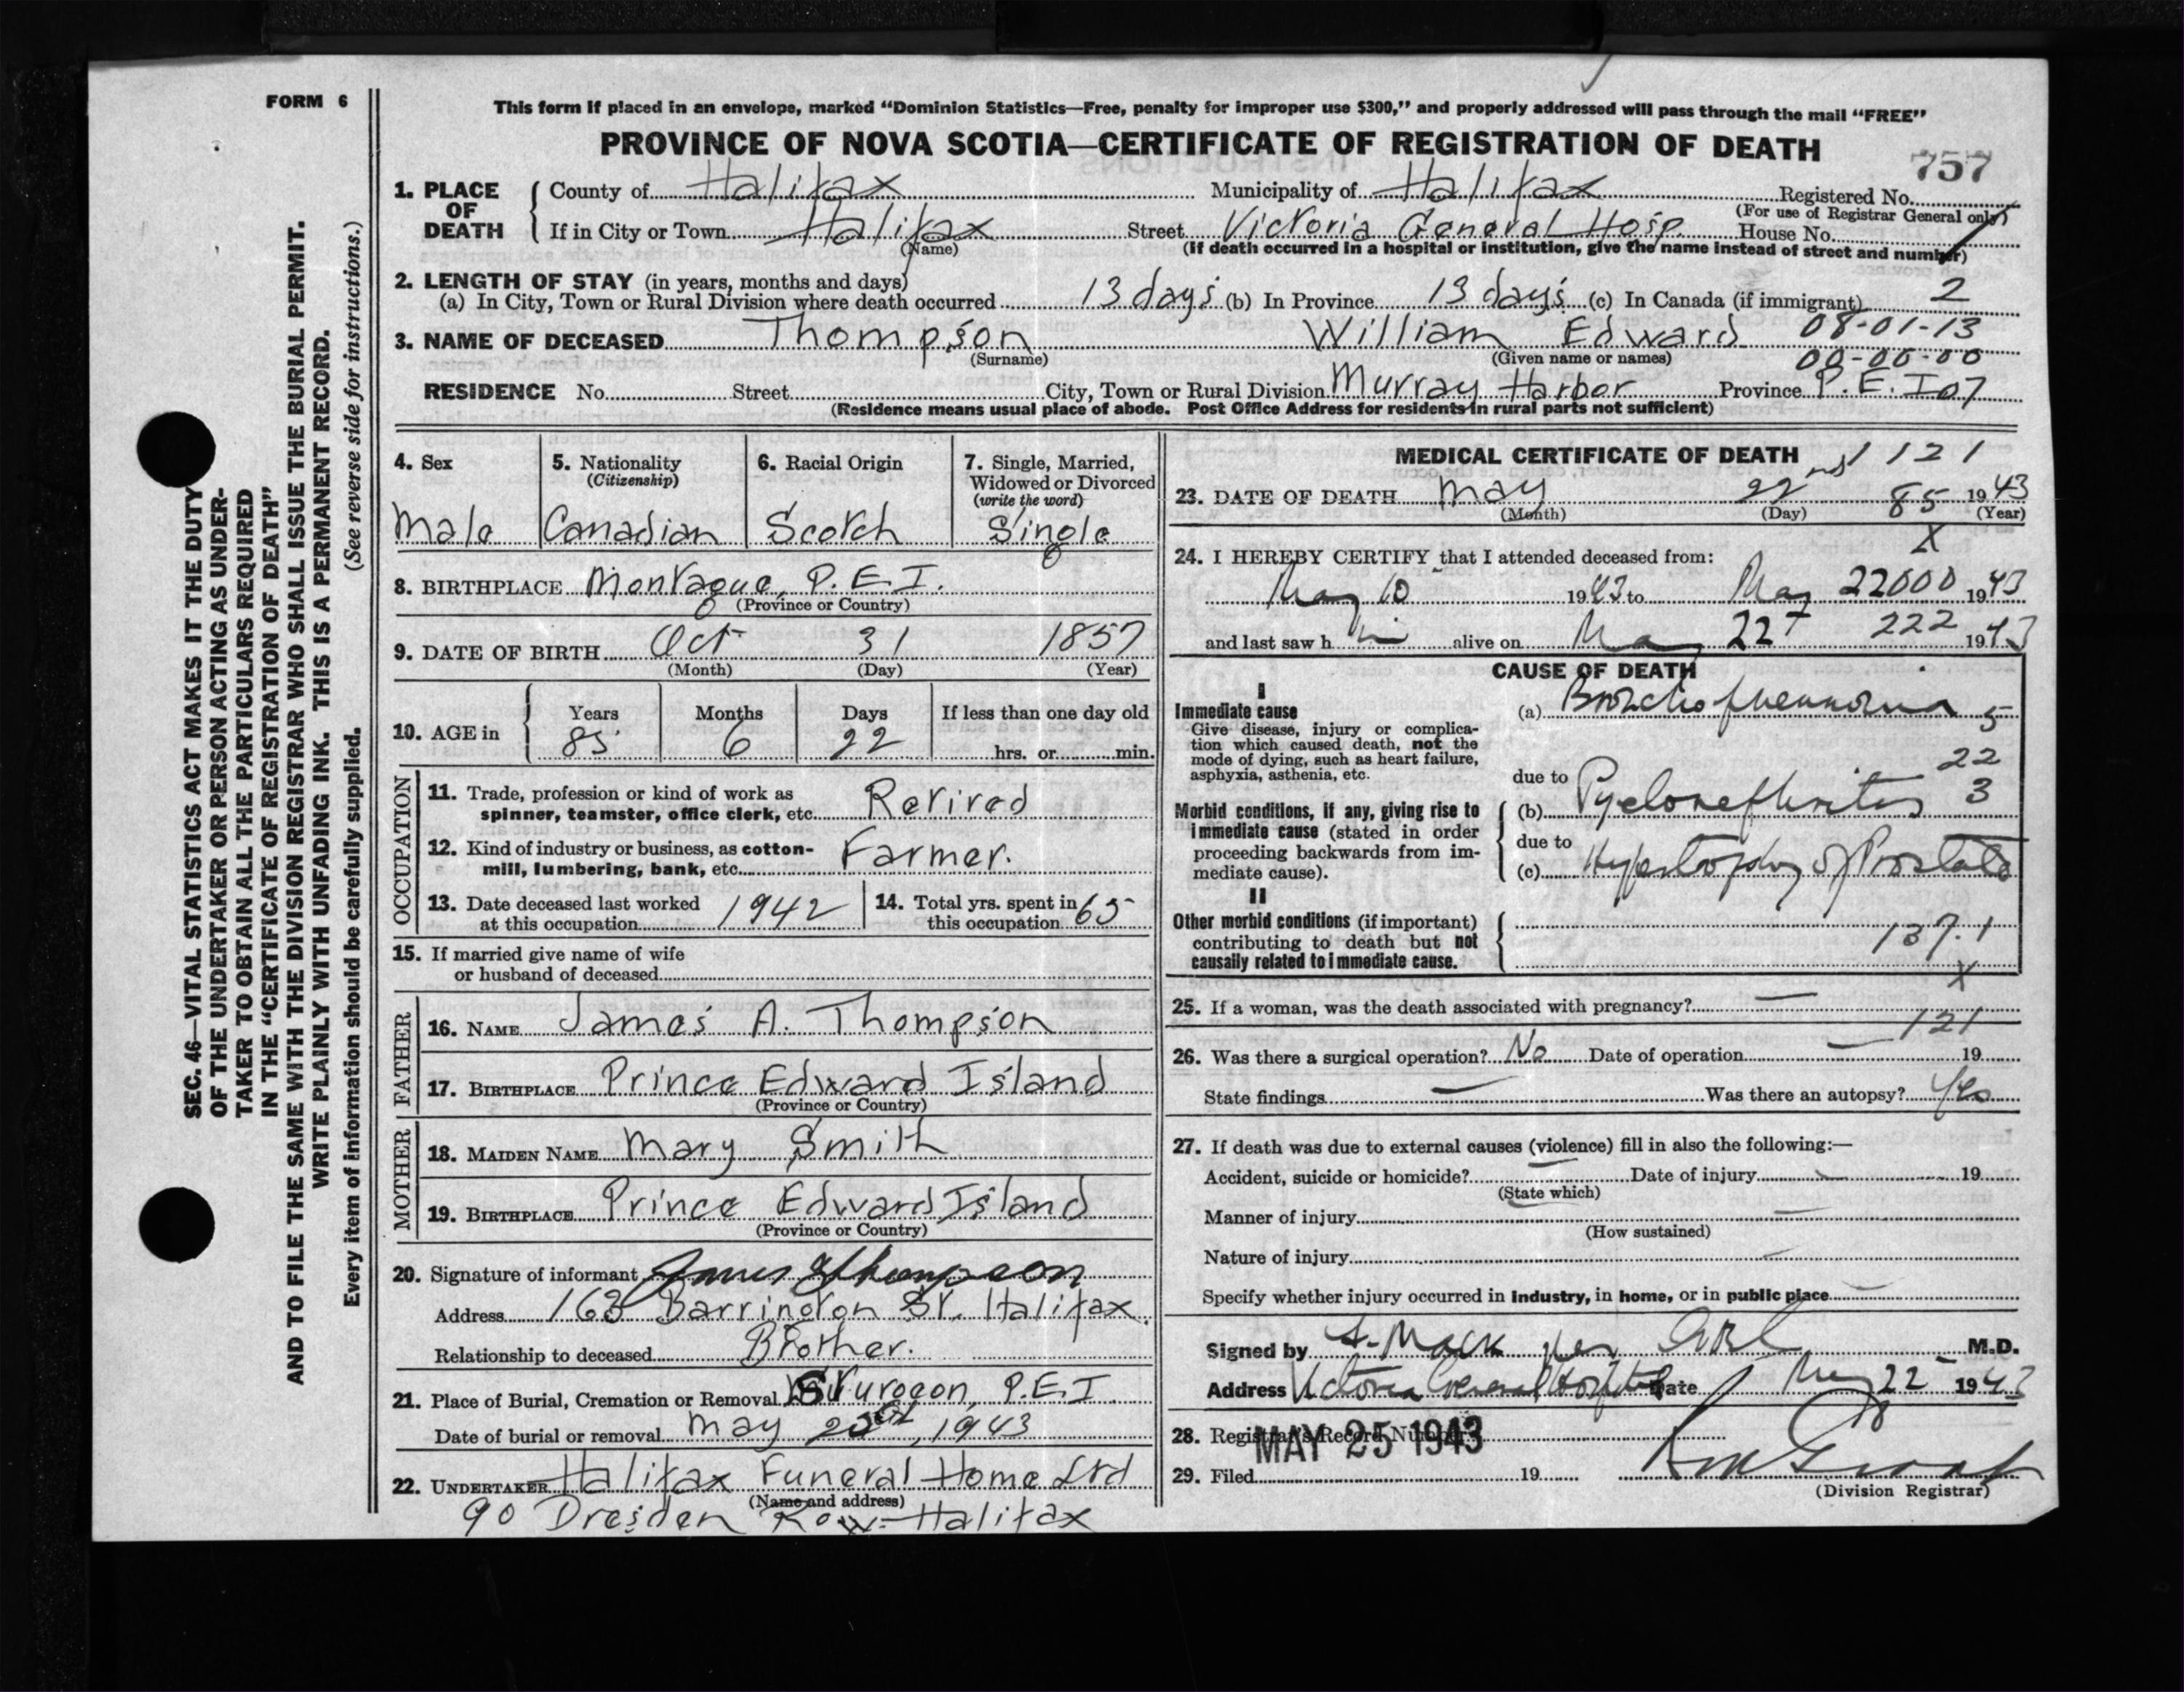 FORM 6
SEC. 46—VITAL STATISTICS ACT MAKES IT THE DUTY
OF THE UNDERTAKER OR PERSON ACTING AS UNDER-
TAKER TO OBTAIN ALL THE PARTICULARS REQUIRED
IN THE "CERTIFICATE OF REGISTRATION OF DEATH"
AND TO FILE THE SAME WITH THE DIVISION REGISTRAR WHO SHALL ISSUE THE BURIAL PERMIT.
WRITE PLAINLY WITH UNFADING INK. THIS IS A PERMANENT RECORD.
Every item of information should be carefully supplied. (See reverse side for instructions.)
This form if placed in an envelope, marked "Dominion Statistics—Free, penalty for improper use $300," and properly addressed will pass through the mail "FREE"
PROVINCE OF NOVA SCOTIA—CERTIFICATE OF REGISTRATION OF DEATH
757
1. PLACE OF DEATH
County of Halifax Municipality of Halifax Registered No.
(For use of Registrar General only)
If in City or Town Halifax Street Victoria General Hosp. House No.
(Name) (If death occurred in a hospital or institution, give the name instead of street and number)
2. LENGTH OF STAY (in years, months and days)
(a) In City, Town or Rural Division where death occurred 13 days (b) In Province 13 days (c) In Canada (if immigrant) 2
3. NAME OF DECEASED Thompson William Edward 08-01-13
(Surname) (Given name or names) 00-00-00
RESIDENCE No. Street City, Town or Rural Division Murray Harbor Province P.E.I 07
(Residence means usual place of abode. Post Office Address for residents in rural parts not sufficient)
4. Sex
Male
5. Nationality
(Citizenship)
Canadian
6. Racial Origin
Scotch
7. Single, Married,
Widowed or Divorced
(write the word)
Single
8. BIRTHPLACE Montague, P.E.I.
(Province or Country)
9. DATE OF BIRTH Oct 31 1857
(Month) (Day) (Year)
10. AGE in
Years Months Days If less than one day old
85 6 22 hrs. or min.
OCCUPATION
11. Trade, profession or kind of work as
spinner, teamster, office clerk, etc. Retired
12. Kind of industry or business, as cotton-
mill, lumbering, bank, etc. Farmer.
13. Date deceased last worked
at this occupation 1942
14. Total yrs. spent in
this occupation 65
15. If married give name of wife
or husband of deceased
FATHER
16. NAME James A. Thompson
17. BIRTHPLACE Prince Edward Island
(Province or Country)
MOTHER
18. MAIDEN NAME Mary Smith
19. BIRTHPLACE Prince Edward Island
(Province or Country)
20. Signature of informant James Thompson
Address 163 Barrington St. Halifax.
Relationship to deceased Brother.
21. Place of Burial, Cremation or Removal Sturgeon, P.E.I
Date of burial or removal May 1943
22. UNDERTAKER Halifax Funeral Home Ltd
(Name and address)
90 Dresden Row-Halifax
MEDICAL CERTIFICATE OF DEATH
1 121
23. DATE OF DEATH May 22nd 85 1943
(Month) (Day) (Year)
X
24. I HEREBY CERTIFY that I attended deceased from:
May 10 1943 to May 22 000 1943
and last saw him alive on May 22 222 1943
CAUSE OF DEATH
I
Immediate cause
Give disease, injury or complica-
tion which caused death, not the
mode of dying, such as heart failure,
asphyxia, asthenia, etc.
(a) Bronchopneumonia 5
22
due to
Morbid conditions, if any, giving rise to
immediate cause (stated in order
proceeding backwards from im-
mediate cause).
(b) Pyelonephritis 3
due to
(c) Hypertrophy of Prostate
II
Other morbid conditions (if important)
contributing to death but not
causally related to immediate cause.
137.1
X
25. If a woman, was the death associated with pregnancy? —
121
26. Was there a surgical operation? No Date of operation — 19
State findings — Was there an autopsy? Yes
27. If death was due to external causes (violence) fill in also the following:—
Accident, suicide or homicide? — Date of injury 19
(State which)
Manner of injury —
(How sustained)
Nature of injury —
Specify whether injury occurred in industry, in home, or in public place —
Signed by M.D.
Address Victoria General Hospital Date May 22 1943
28. Registrar's Record Number
MAY 25 1943
29. Filed 19
(Division Registrar)